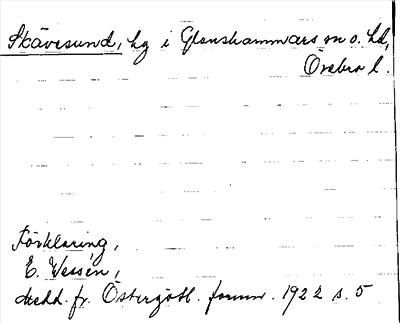 Skävesund, hg i Glanshammars sn o. hd,
Örebro l.
Förklaring,
E. Wessén,
Medd. fr. Östergötl. fornm. 1922 s. 5